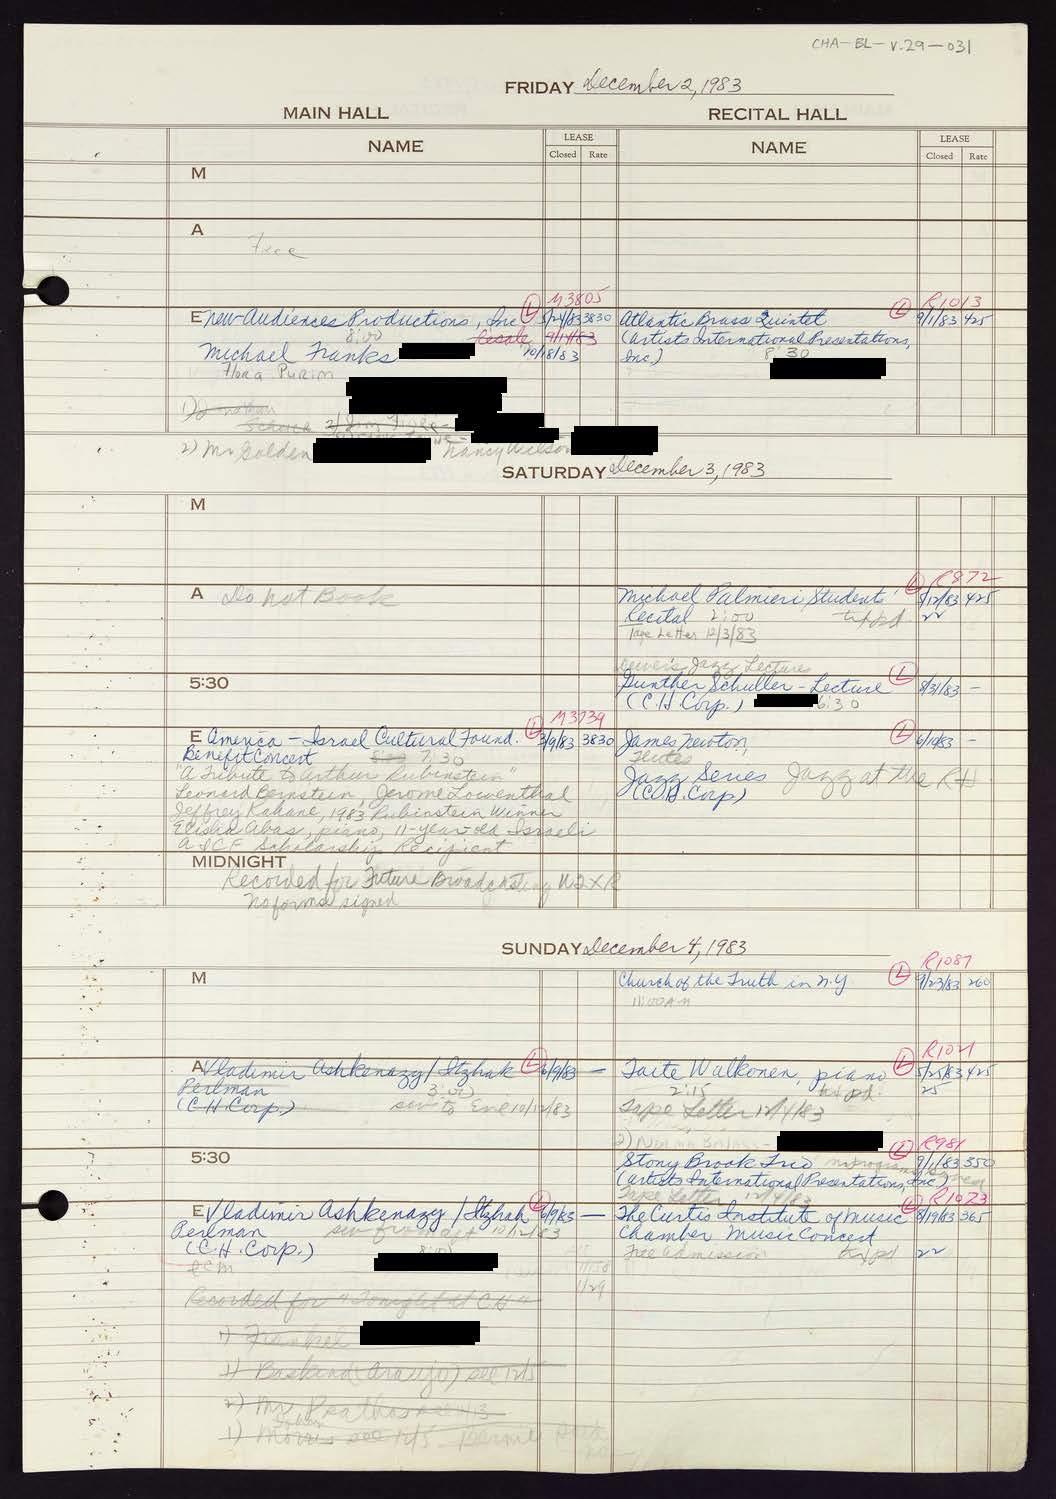 CHA-BL-V.29-031
FRIDAY December 2, 1983
MAIN HALL
RECITAL HALL
NAME
LEASE
Closed Rate
NAME
LEASE
Closed Rate
M
A
Free
M3805
E New Audiences Productions, Inc L 5/24/83 3830
8:00 Cesale 9/14/83
Michael Franks 10/18/83
Flora Purim
1) Jonathan
2) Mr Golden Nancy Wilson
R1013
Atlantic Brass Quintet L 9/1/83 425
(Artists International Presentations,
Inc.) 8:30
SATURDAY December 3, 1983
M
A Do Not Book
R872
Michael Palmieri, Students' L 5/12/83 425
Recital 2:00 22
Tape Letter 12/3/83
5:30
Jazz Lectures
Gunther Schuller - Lecture L 8/31/83 -
(C.H. Corp.) 6:30
M3739
E America - Israel Cultural Found. L 3/9/83 3830
Benefit Concert 7:30
"A Tribute to Arthur Rubinstein"
Leonard Bernstein, Jerome Lowenthal
Jeffrey Kahane, 1983 Rubinstein Winner
Elisha Abas, piano, 11-year-old Israeli
AICF Scholarship Recipient
James Newton, L 6/10/83 -
flutes
Jazz Series Jazz at the RH
(C.H. Corp)
MIDNIGHT
Recorded for Future Broadcasting WQXR
No forms signed
SUNDAY December 4, 1983
M
R1087
Church of the Truth in N.Y. L 9/23/83 260
11:00 AM
A Vladimir Ashkenazy / Itzhak L 6/9/83 -
Perlman 3:00
(C.H. Corp.) see to Eve 10/12/83
R1021
Taite Walkonen, piano L 5/25/83 425
2:15 25
Tape Letter 12/4/83
2)
5:30
R981
Stony Brook Trio L 9/1/83 350
(Artists International Presentations, Inc)
Tape Letter 12/4/83
E Vladimir Ashkenazy / Itzhak L 6/9/83 -
Perlman see from aft 10/12/83
(C.H. Corp.) 8:00
R1023
The Curtis Institute of Music L 8/19/83 365
Chamber Music Concert
Free Admission 22
1/29
Recorded for "Tonight at C.H."
1) Frankel
1) Baskind (Araujo) see 12/5
2) Mr.
1) Morris see 12/5